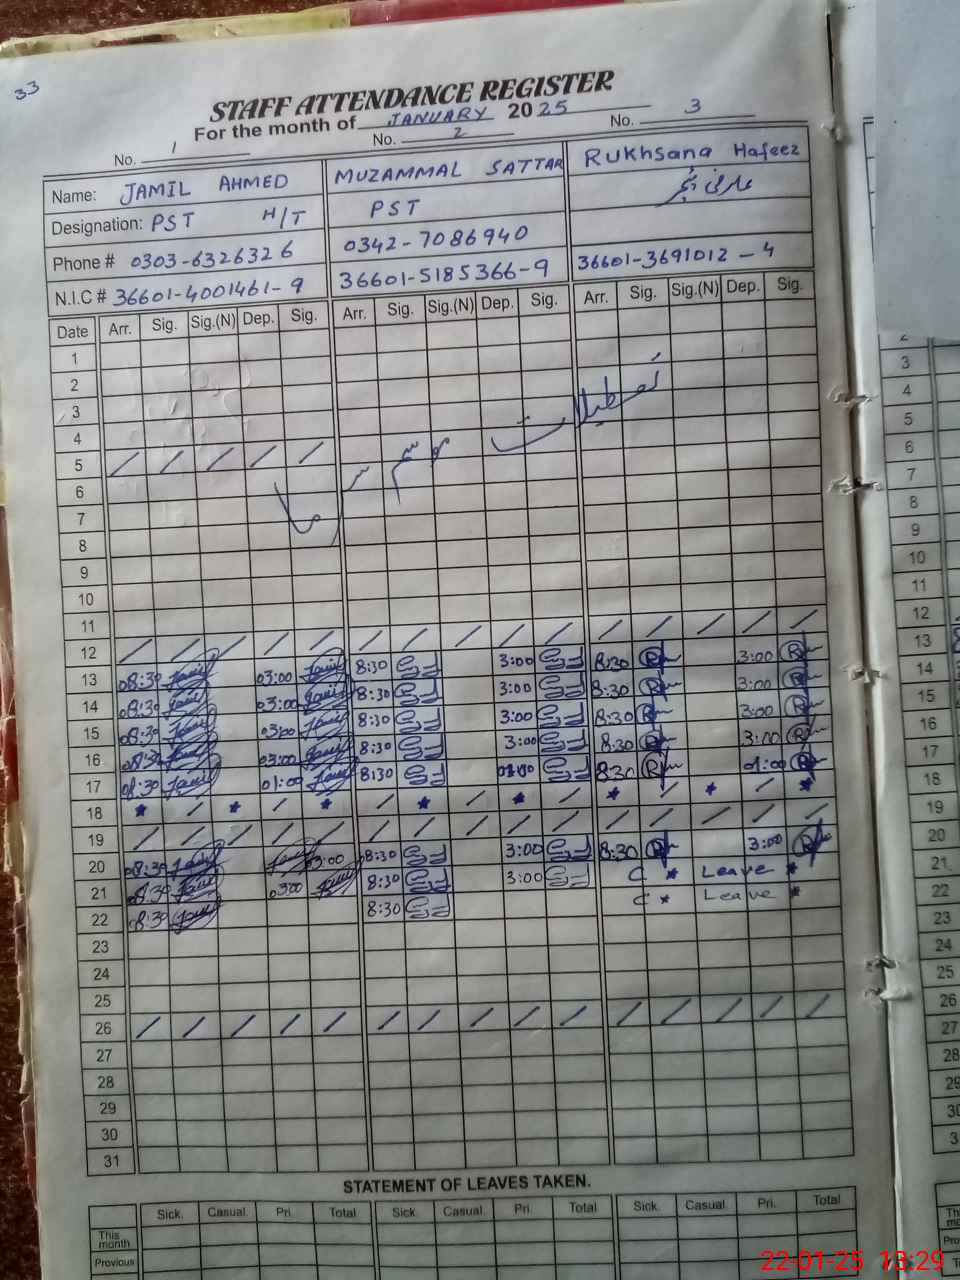 33
STAFF ATTENDANCE REGISTER
For the month of JANUARY 2025
No. 1 No. 2 No. 3
Name: JAMIL AHMED MUZAMMAL SATTAR Rukhsana Hafeez
Designation: PST H/T PST عارضی ٹیچر
Phone # 0303-6326326 0342-7086940
N.I.C # 36601-4001461-9 36601-5185366-9 36601-3691012-4
Date Arr. Sig. Sig.(N) Dep. Sig. Arr. Sig. Sig.(N) Dep. Sig. Arr. Sig. Sig.(N) Dep. Sig.
1
2
3
4
5 / / / / /
تعطیلات موسم سرما
6
7
8
9
10
11
12 / / / / / / / / / / / / / / /
13 08:30 Jamil 03:00 Jamil 8:30 3:00 8:30 3:00
14 08:30 Jamil 03:00 Jamil 8:30 3:00 8:30 3:00
15 08:30 Jamil 03:00 Jamil 8:30 3:00 8:30 3:00
16 08:30 Jamil 03:00 Jamil 8:30 3:00 8:30 3:00
17 08:30 Jamil 01:00 Jamil 8:30 8:30 01:00
18 * / * / * / * / * / * / * / *
19 / / / / / / / / / / / / / / /
20 08:30 Jamil Jamil 03:00 8:30 3:00 8:30 3:00
21 08:30 Jamil 03:00 Jamil 8:30 3:00 C * Leave *
22 08:30 Jamil 8:30 C * Leave *
23
24
25
26 / / / / / / / / / / / / / / /
27
28
29
30
31
STATEMENT OF LEAVES TAKEN.
Sick. Casual. Pri. Total Sick. Casual. Pri. Total Sick. Casual. Pri. Total
This month
Previous
2
3
4
5
6
7
8
9
10
11
12
13
14
15
16
17
18
19
20
21
22
23
24
25
26
27
28
29
30
3
22-01-25 13:29